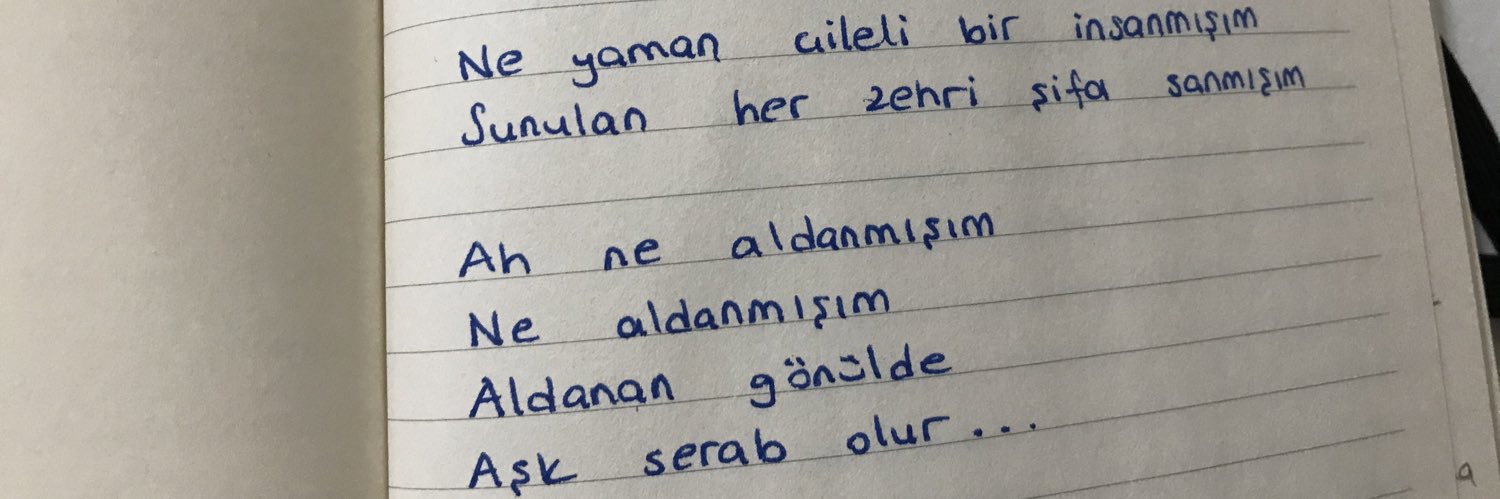 Ne yaman aileli bir insanmışım
Sunulan her zehri şifa sanmışım
Ah ne aldanmışım
Ne aldanmışım
Aldanan gönülde
Aşk serab olur...